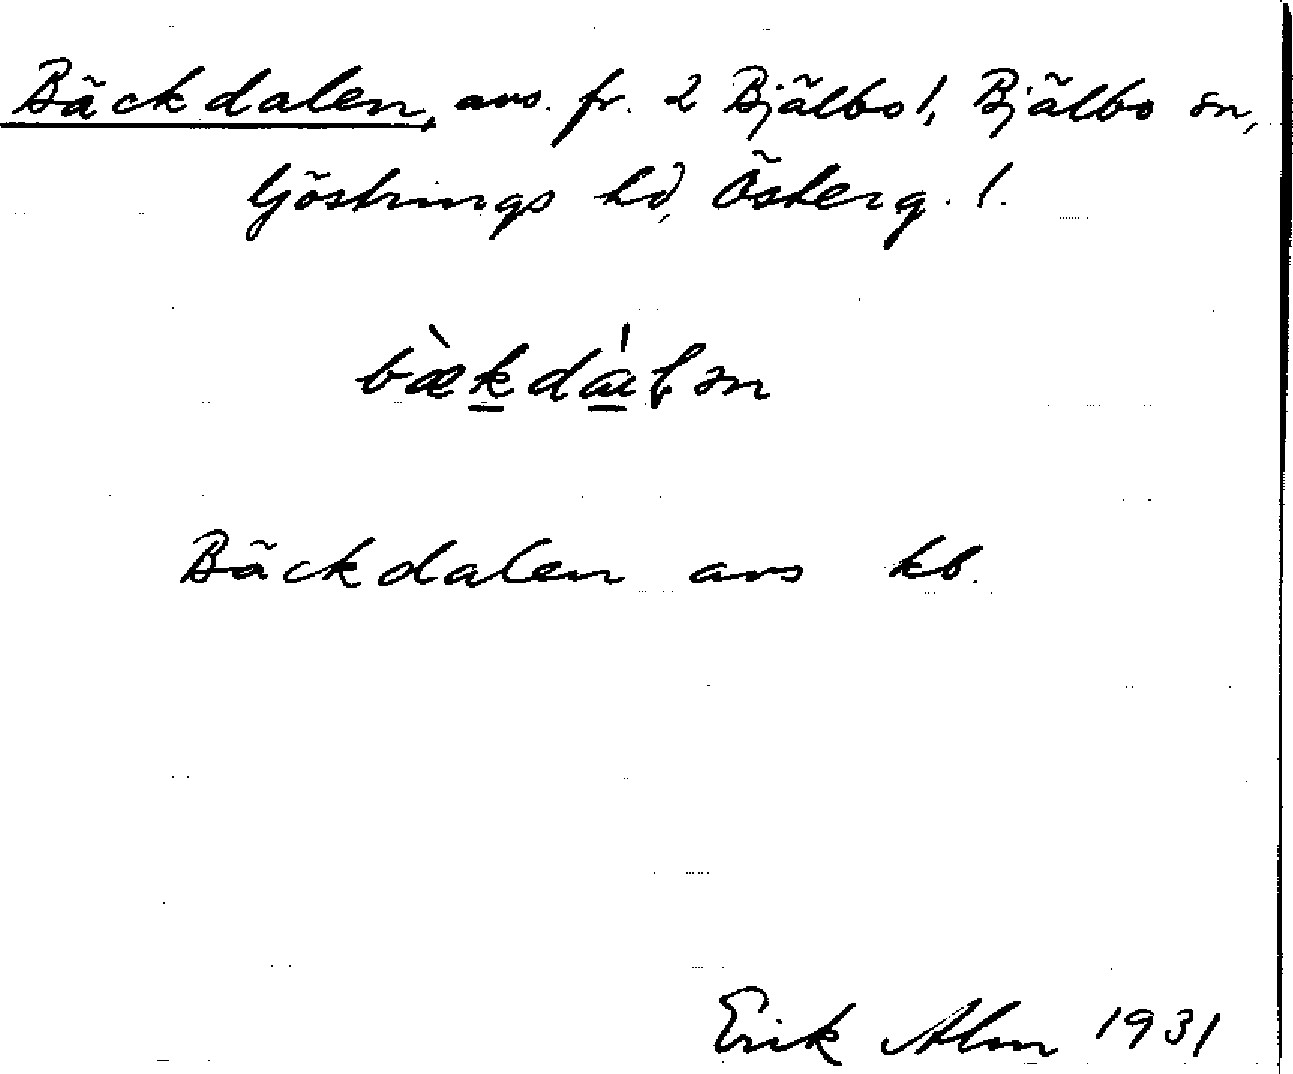 Bäckdalen, avs. fr. 2 Bjälbo 1, Bjälbo sn,
Göstrings hd, Österg. l.
Bäckdalen avs kb.
Erik Alm 1931